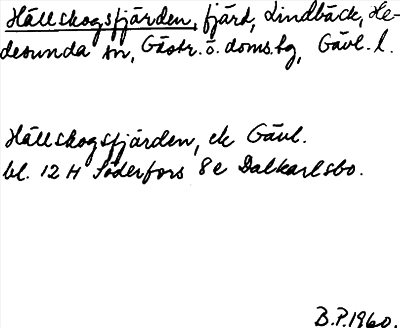 Hällskogsfjärden, fjärd, Lindbäck, He-
desunda sn, Gästr. ö. doms.hg, Gävl. l.
Hällskogsfjärden, ek Gävl.
bl. 12 H Söderfors 8 e Dalkarlsbo.
B.P. 1960.